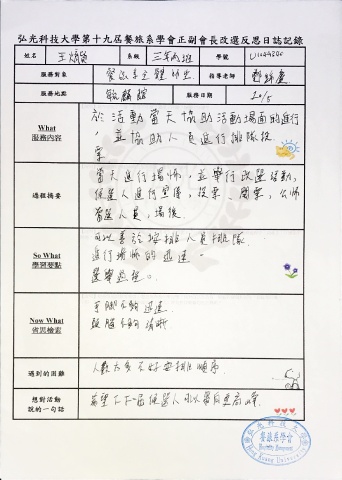 弘光科技大學第十九屆餐旅系學會正副會長改選反思日誌記錄
姓名 系級 三年丙班 學號
服務對象 餐旅系全體師生 指導老師
服務地點 毓麟館 服務日期 20/5
What
服務內容
於活動當天協助活動場面的進行
,並協助人員進行排隊投
票
過程摘要
當天進行場佈,並舉行改選活動,
候選人進行宣傳,投票、開票,公佈
當選人員,場復。
So What
學習要點
可以善於安排人員排隊
進行場佈的迅速。
選舉過程。
Now What
省思檢索
手腳不夠迅速
頭腦不夠清晰
遇到的困難
人數太多不好安排順序
想對活動
說的一句話
希望下下一屆候選人可以
弘光科技大學
餐旅系學會